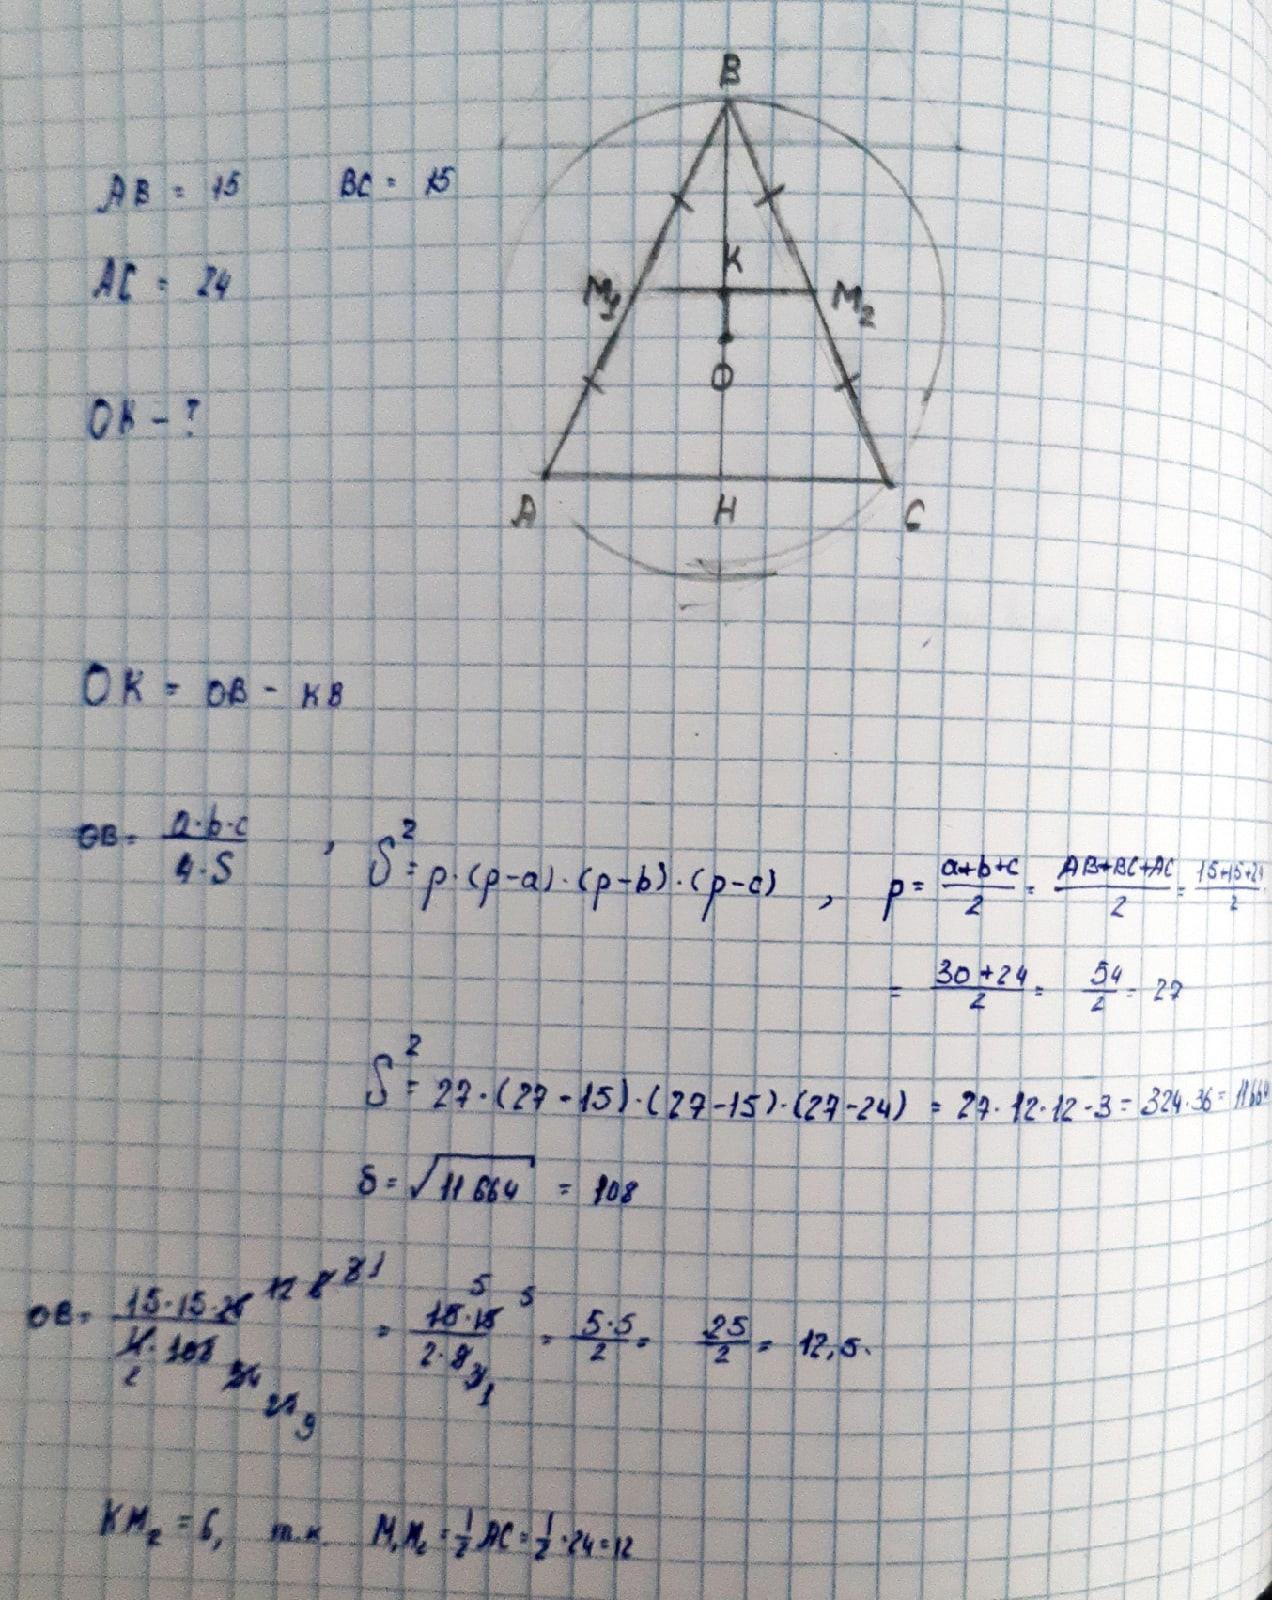 B
AB = 15 BC = 15
K
AC = 24
M₁ M₂
O
OK - ?
A H C
OK = OB - KB
OB = a·b·c / 4·S , S² = p·(p-a)·(p-b)·(p-c) , p = a+b+c / 2 = AB+BC+AC / 2 = 15+15+24 / 2
= 30+24 / 2 = 54 / 2 = 27
S² = 27·(27-15)·(27-15)·(27-24) = 27·12·12·3 = 324·36 = 11664
S = √11664 = 108
OB = 15·15·24 / 4·108 = 15·15 / 2·9 = 5·5 / 2 = 25 / 2 = 12,5.
KM₂ = 6, т.к. M₁M₂ = 1/2 AC = 1/2 · 24 = 12